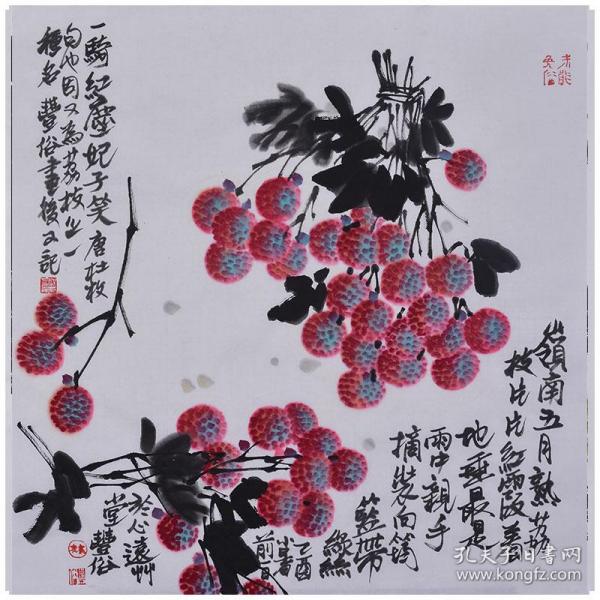 嶺南五月熟荔
枝片片紅霞蓋
地垂最是
雨中親手
摘裝向筠
藍帶
綠絲
乙酉
小暑
前日
於心遠艸
堂豐俗
一騎紅塵妃子笑唐杜牧
句也因又為荔枝之一
種名豐俗畫後又記
孔夫子旧书网
www.kongfz.com